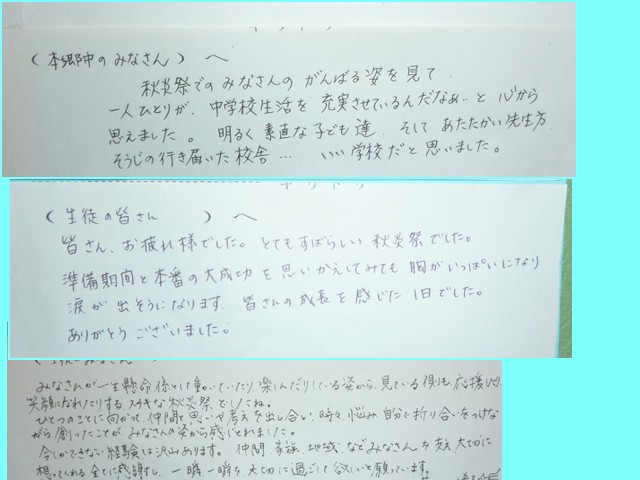 キリトリ
(本郷中のみなさん)へ
秋炎祭でのみなさんのがんばる姿を見て
一人ひとりが、中学校生活を充実させているんだなぁ…と心から
思えました。明るく素直な子ども達、そしてあたたかい先生方、
そうじの行き届いた校舎… いい学校だと思いました。
キリトリ
(生徒の皆さん)へ
皆さん、お疲れ様でした。とてもすばらしい秋炎祭でした。
準備期間と本番の大成功を思いかえしてみても胸がいっぱいになり
涙が出そうになります。皆さんの成長を感じた1日でした。
ありがとうございました。
みなさん
みなさんが一生懸命係として動いていたり楽しんだりしている姿から、見ている側も応援したり
笑顔になれたりする、ステキな秋炎祭でしたね。
ひとつのことに向かって仲間と思いや考えを出し合い、時々悩み自分で折り合いをつけな
がら創ったことがみなさんの姿から感じとれました。
今しかできない経験は沢山あります。仲間、家族、地域、などみなさんを支え大切に
想ってくれる全てに感謝し、一瞬一瞬を大切に過ごして欲しいと願っています。